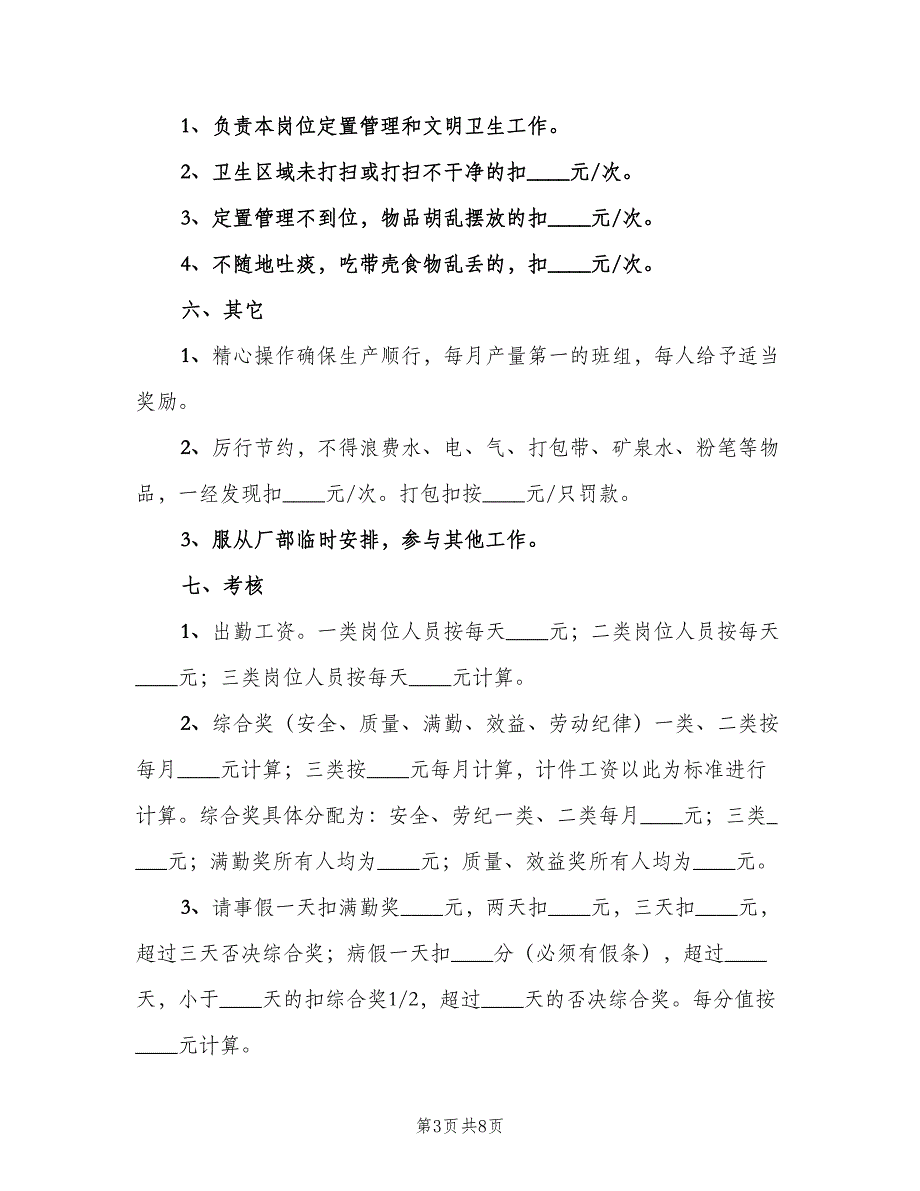 1、负责本岗位定置管理和文明卫生工作。
2、卫生区域未打扫或打扫不干净的扣____元/次。
3、定置管理不到位，物品胡乱摆放的扣____元/次。
4、不随地吐痰，吃带壳食物乱丢的，扣____元/次。
六、其它
1、精心操作确保生产顺行，每月产量第一的班组，每人给予适当
奖励。
2、厉行节约，不得浪费水、电、气、打包带、矿泉水、粉笔等物
品，一经发现扣____元/次。打包扣按____元/只罚款。
3、服从厂部临时安排，参与其他工作。
七、考核
1、出勤工资。一类岗位人员按每天____元；二类岗位人员按每天
____元；三类岗位人员按每天____元计算。
2、综合奖（安全、质量、满勤、效益、劳动纪律）一类、二类按
每月____元计算；三类按____元每月计算，计件工资以此为标准进行
计算。综合奖具体分配为：安全、劳纪一类、二类每月____元；三类_
___元；满勤奖所有人均为____元；质量、效益奖所有人均为____元。
3、请事假一天扣满勤奖____元，两天扣____元，三天扣____元，
超过三天否决综合奖；病假一天扣____分（必须有假条），超过____
天，小于____天的扣综合奖1/2，超过____天的否决综合奖。每分值按
____元计算。
第3页 共8页